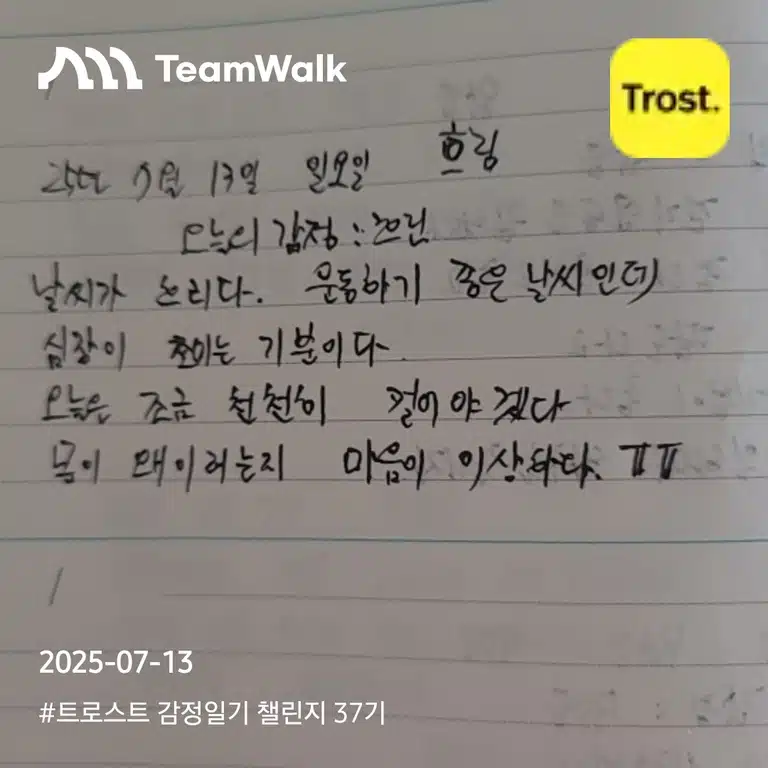 TeamWalk
Trost.
25년 7월 13일 일요일 흐림
오늘의 감정 : 흐린
날씨가 흐리다. 운동하기 좋은 날씨인데
심장이 조이는 기분이다.
오늘은 조금 천천히 걸어야겠다
몸이 왜이러는지 마음이 이상하다. ㅠㅠ
2025-07-13
#트로스트 감정일기 챌린지 37기